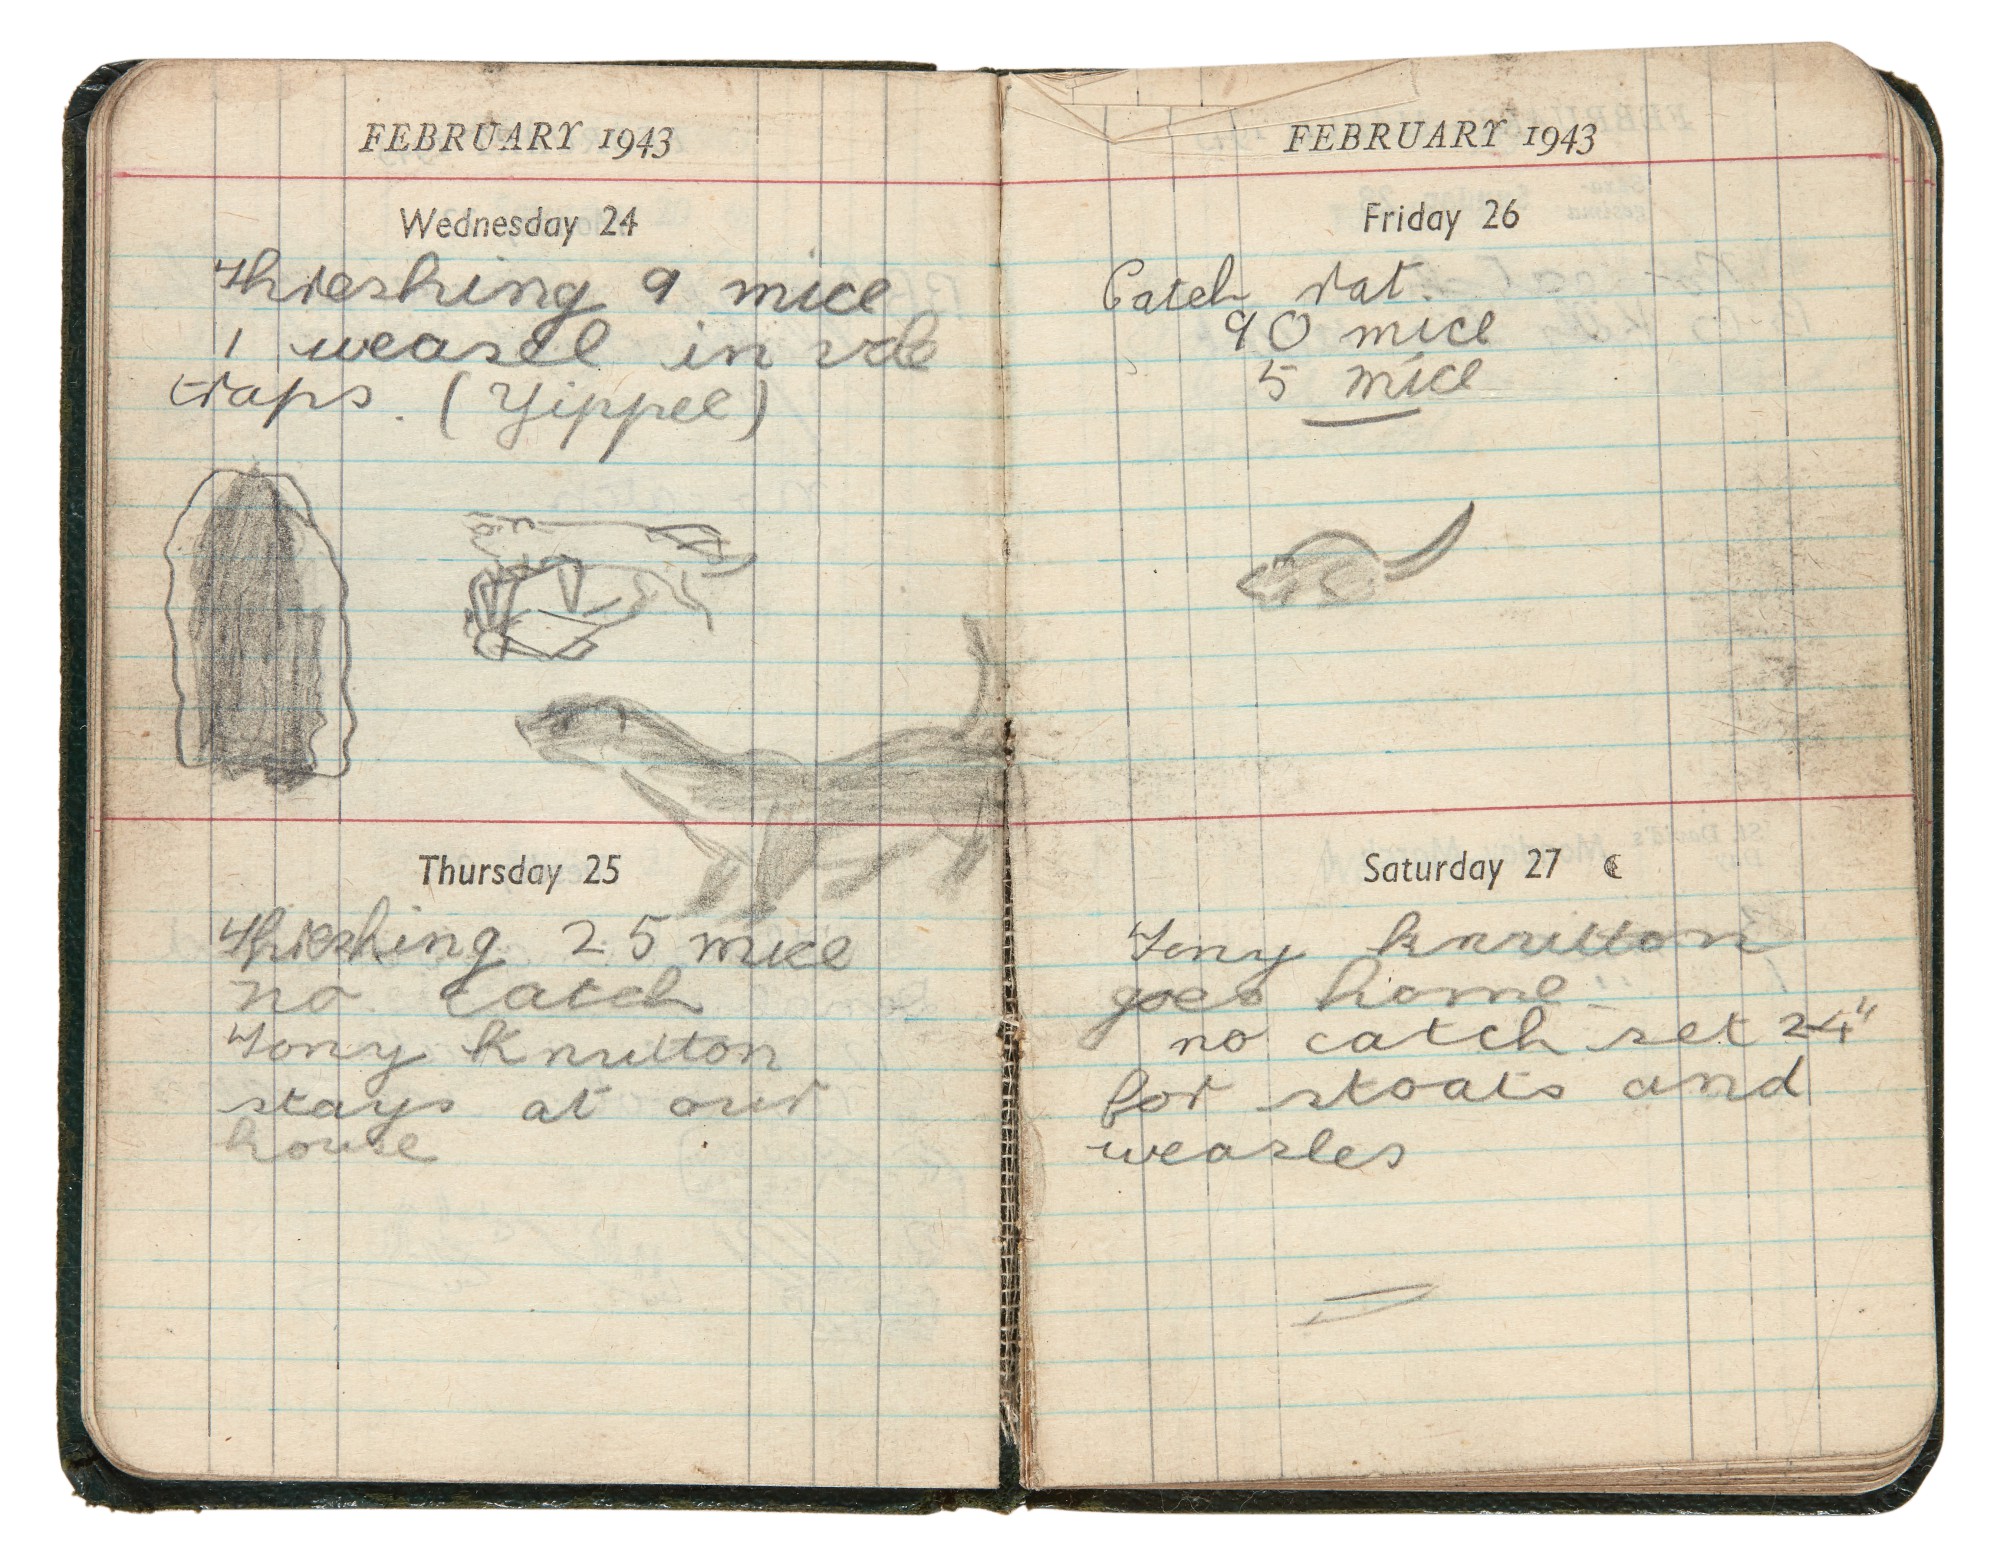 FEBRUARY 1943
Wednesday 24
Threshing 9 mice
1 weasel in
traps. (Yippee)
Thursday 25
Threshing 25 mice
no catch
Tony Knutton
stays at our
house
FEBRUARY 1943
Friday 26
Catch rat.
90 mice
5 mice
Saturday 27
Tony Knutton
goes home
no catch set 24"
for stoats and
weasles